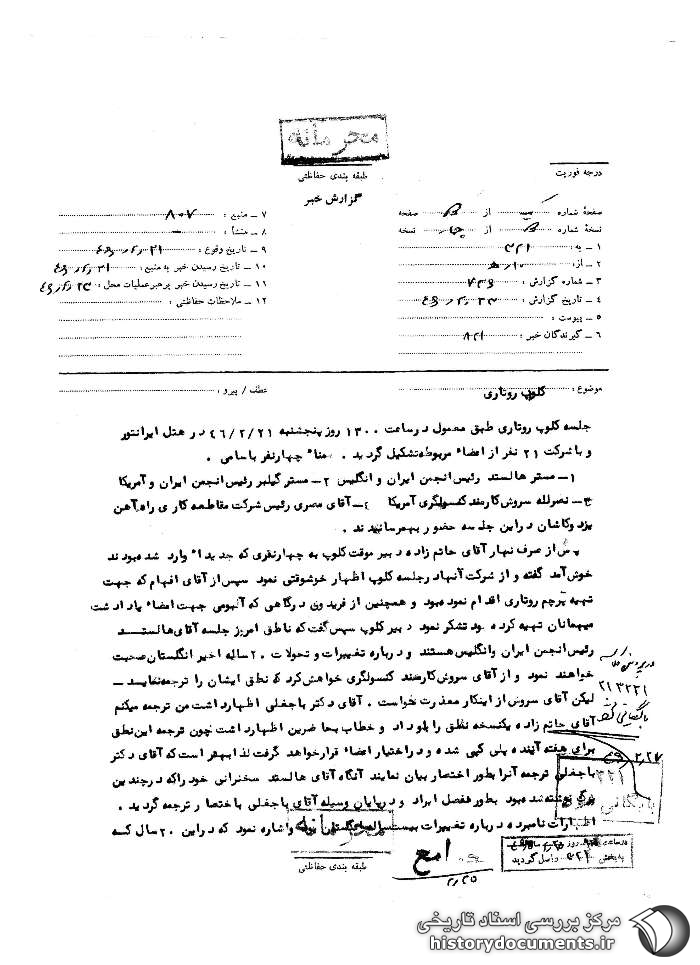 محرمانه
طبقه بندی حفاظتی
درجه فوریت
گزارش خبر
صفحهٔ شماره یک از ۵ صفحه
نسخهٔ شماره ۵ از چهار نسخه
۱ – به : ۳۲۱
۲ – از : ۱۰ ه‍
۳ – شماره گزارش : ۷۳۹
۴ – تاریخ گزارش : ۲۳ر۲ر۴۶
۵ – پیوست :
۶ – گیرندگان خبر : ۸۲۱
۷ – منبع : ۸۰۷
۸ – منشأ : –
۹ – تاریخ وقوع : ۲۱ر۲ر۴۶
۱۰ – تاریخ رسیدن خبر به منبع : ۲۱ر۲ر۴۶
۱۱ – تاریخ رسیدن خبر برهبر عملیات محل : ۲۳ر۲ر۴۶
۱۲ – ملاحظات حفاظتی :
موضوع : کلوپ روتاری
عطف / پیرو :
جلسه کلوپ روتاری طبق معمول در ساعت ۱۳۰۰ روز پنجشنبه ۴۶/۲/۲۱ در هتل ایرانتور
و با شرکت ۲۱ نفر از اعضاء مربوطه تشکیل گردید . ضمناً چهار نفر باسامی .
۱– مستر هالستد رئیس انجمن ایران و انگلیس ۲– مستر گیلبر رئیس انجمن ایران و آمریکا
۳– نصرلله سروش کارمند کنسولگری آمریکا ٤– آقای مصری رئیس شرکت مقاطعه کاری راه آهن
یزد و کاشان در این جلسه حضور بهم رسانیدند .
پس از صرف نهار آقای حاتم زاده دبیر موقت کلوپ به چهار نفری که جدیداً وارد شده بودند
خوش آمد گفته و از شرکت آنها در جلسه کلوپ اظهار خوشوقتی نمود سپس از آقای افهام که جهت
تهیه پرچم روتاری اقدام نموده بود و همچنین از فریدون درگاهی که آلبومی جهت امضاء یاداشت
میهمانان تهیه کرده بود تشکر نمود دبیر کلوپ سپس گفت که ناطق امروز جلسه آقای هالستد
رئیس انجمن ایران وانگلیس هستند و درباره تغییرات و تحولات ۲۰ ساله اخیر انگلستان صحبت
خواهند نمود و از آقای سروش کارمند کنسولگری خواهش کرد که نطق ایشان را ترجمه نماید –
لیکن آقای سروش از اینکار معذرت خواست . آقای دکتر باجغلی اظهار داشت من ترجمه میکنم
آقای حاتم زاده یک نسخه نطق را باو داد و خطاب بحاضرین اظهار داشت چون ترجمه این نطق
برای هفته آینده پلی کپی شده و در اختیار اعضاء قرار خواهد گرفت لذا بهتر است که آقای دکتر
باجغلی ترجمه آنرا بطور اختصار بیان نمایند آنگاه آقای هالستد سخنرانی خود را که در چندین
برگ نوشته شده بود بطور مفصل ایراد و در پایان وسیله آقای باجغلی باختصار ترجمه گردید .
اظهارات نامبرده درباره تغییرات بیست ساله انگلستان بود و اشاره نمود که در این ۲۰ سال که
۲۱۳۲۲۱
بایگانی شود
۴۶٫۲٫۲۷
۳۲۱
بایگانی
محرمانه
طبقه بندی حفاظتی
امع
۲٫۲۵
به بخش ۳۲۱ واصل گردید
مرکز بررسی اسناد تاریخی
historydocuments.ir